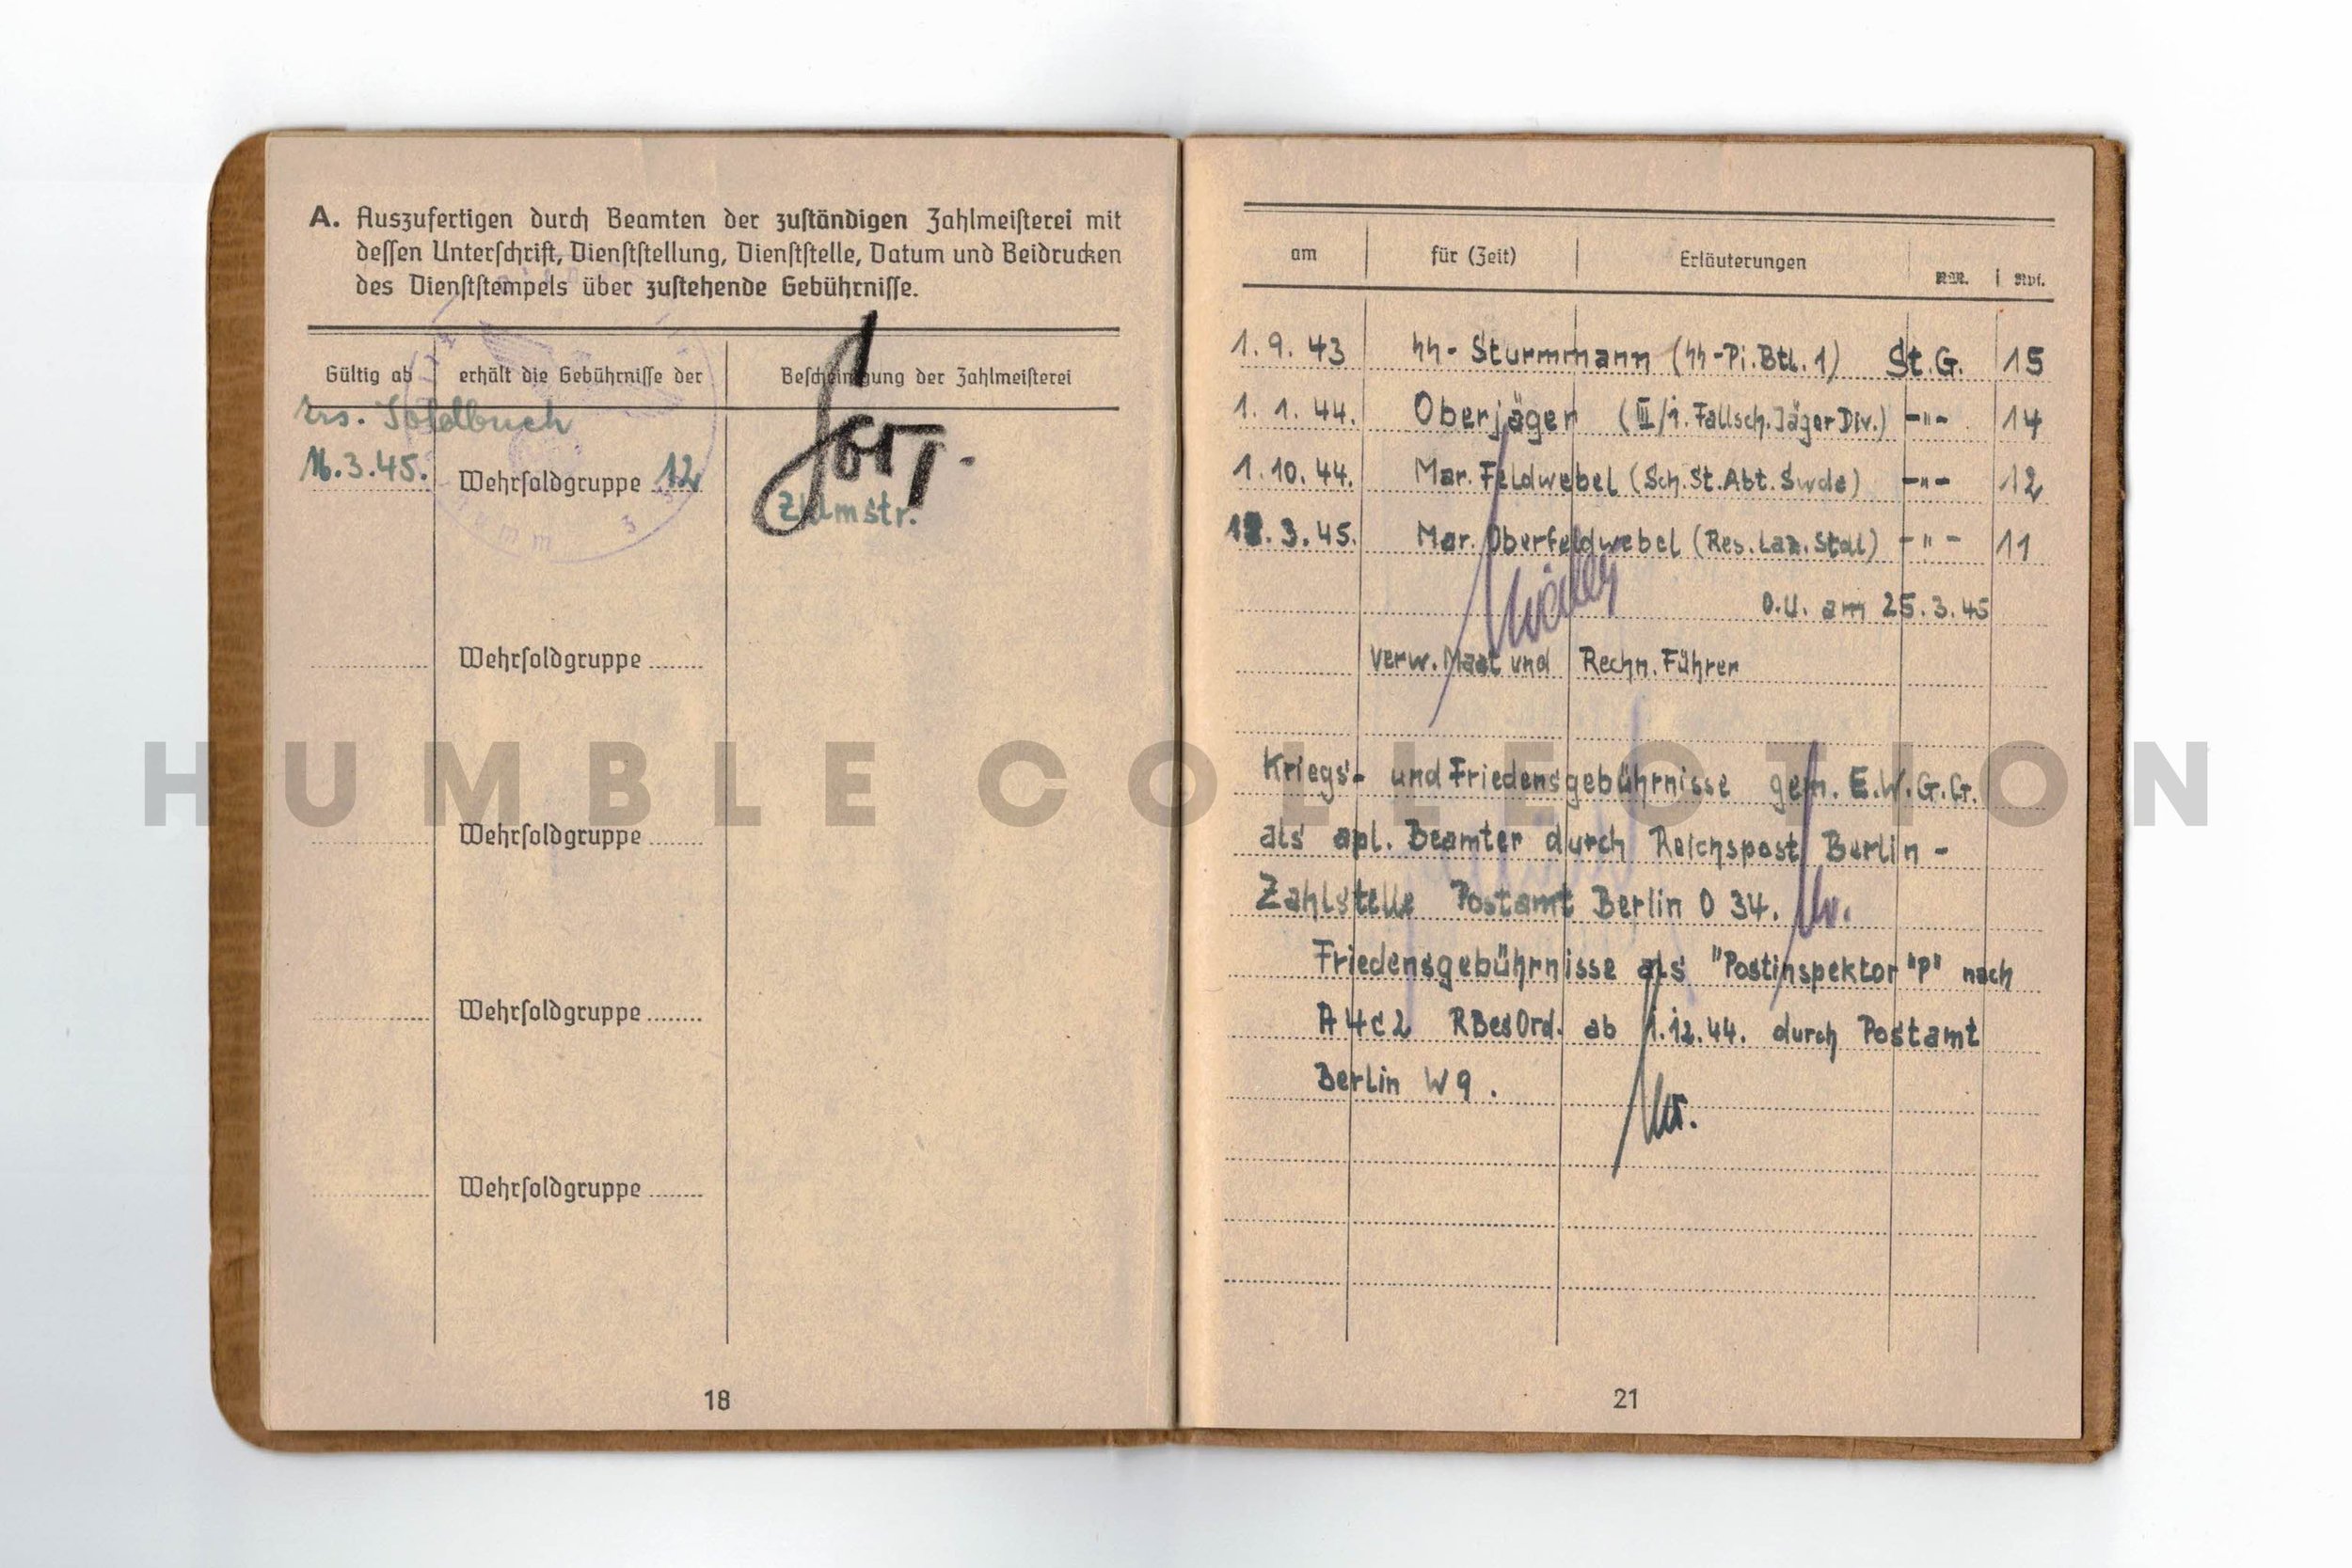 A. Auszufertigen durch Beamten der zuständigen Zahlmeisterei mit
dessen Unterschrift, Dienststellung, Dienststelle, Datum und Beidrucken
des Dienststempels über zustehende Gebührnisse.
Gültig ab erhält die Gebührnisse der Bescheinigung der Zahlmeisterei
Ers. Soldbuch
16.3.45. Wehrsoldgruppe 12
Zhlmstr.
Wehrsoldgruppe
Wehrsoldgruppe
Wehrsoldgruppe
Wehrsoldgruppe
18
am für (Zeit) Erläuterungen
1.9.43 ϟϟ-Sturmmann (ϟϟ-Pi.Btl.1) St.G. 15
1.1.44. Oberjäger (III/1. Fallsch.JägerDiv.) -"- 14
1.10.44. Mar. Feldwebel (Sch.St.Abt. Swde) -"- 12
3.45. Mar. Oberfeldwebel (Res. Laz. Stdl) -"- 11
O.U. am 25.3.45
Verw. Maat und Rechn. Führer
Kriegs- und Friedensgebührnisse gem. E.W.G.G.
als apl. Beamter durch Reichspost Berlin -
Zahlstelle Postamt Berlin O 34.
Friedensgebührnisse als "Postinspektor "P" nach
A4c2 RBesOrd. ab 1.12.44. durch Postamt
Berlin W9.
21
HUMBLE COLLECTION